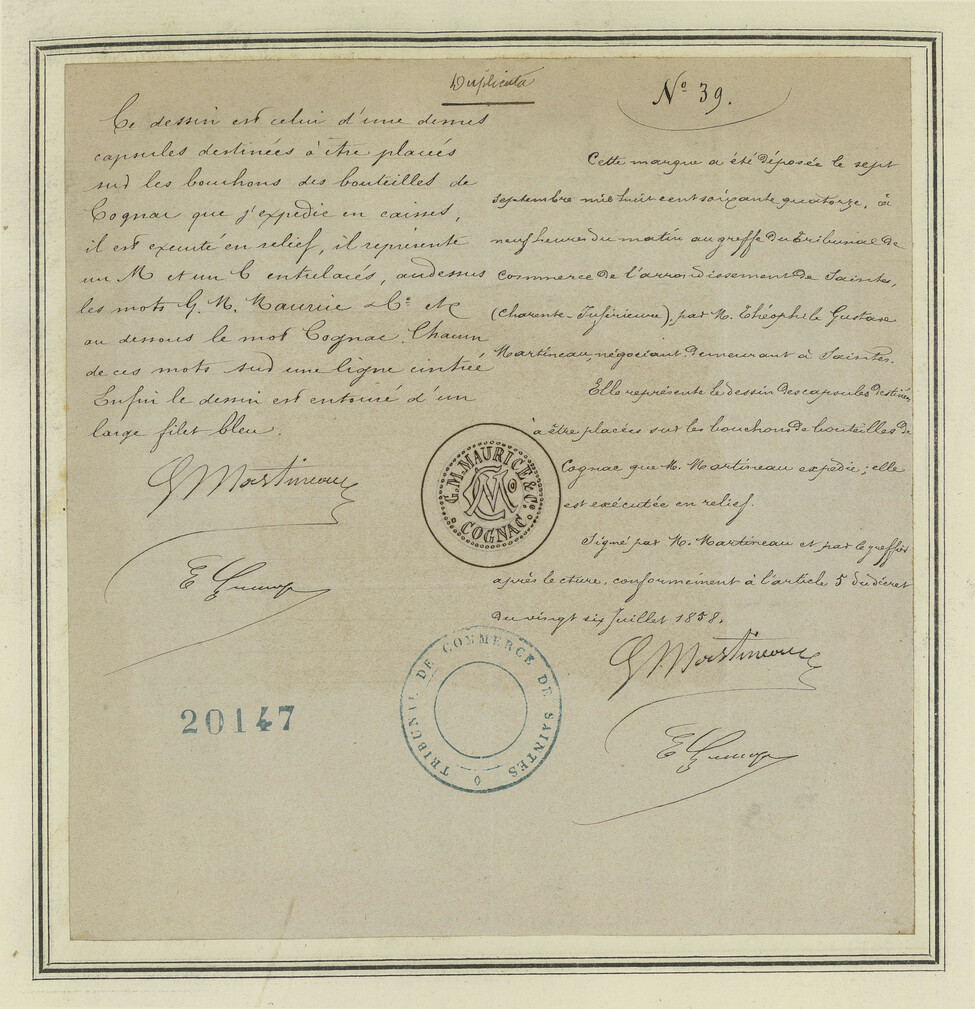 Duplicata
Ce dessin est celui d'une demes
capsules destinées à être placées
sud les bouchons des bouteilles de
Cognac que j'expedie en caisses,
il est executé en relief, il représente
un M et un C entrelacés, audessus
les mots G. M. Maurice & Cie et
au dessous le mot Cognac. Chacun
de ces mots sud une ligne cintrée
Enfin le dessin est entouré d'un
large filet bleu.
G Martineau
E
20147
G. M. MAURICE & Co
MC
COGNAC
TRIBUNAL DE COMMERCE DE SAINTES
No 39.
Cette marque a été déposée le sept
septembre mil huit cent soixante quatorze, à
neuf heures du matin au greffe du Tribunal de
commerce de l'arrondissement de Saintes,
(Charente-Inférieure), par M. Théophile Gustave
Martineau, négociant demeurant à Saintes.
Elle représente le dessin des capsules destinées
à être placées sur les bouchons de bouteilles de
Cognac que M. Martineau expédie; elle
est exécutée en relief.
Signé par M. Martineau et par le greffier
après lecture, conformément à l'article 5 du décret
du vingt six Juillet 1858.
G Martineau
E